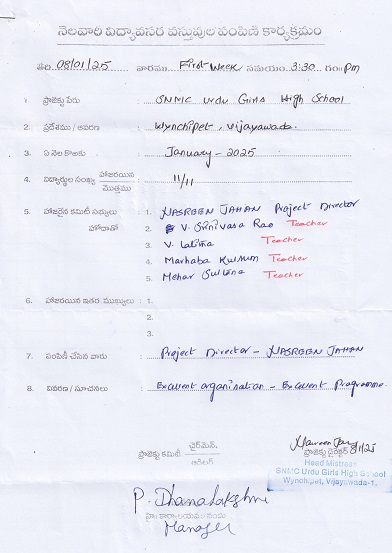 నెలవారీ విద్యావసర వస్తువుల పంపిణీ కార్యక్రమం
తేది 08/01/25 వారము First Week సమయం 3:30 గం॥ pm
1. ప్రాజెక్టు పేరు : SNMC Urdu Girls High School
2. ప్రదేశము / ఆవరణ : Wynchipet, Vijayawada.
3. ఏ నెల కొఱకు : January - 2025
4. విద్యార్థుల సంఖ్య హాజరయిన : 11/11
మొత్తము
5. హాజరైన కమిటీ సభ్యులు : 1. NASREEN JAHAN Project Director
హోదాతో 2. V. Srinivasa Rao Teacher
3. V. Lalitha Teacher
4. Marhaba Kulsum Teacher
5. Mehar Sultana Teacher
6. హాజరయిన ఇతర ముఖ్యులు : 1.
2.
3.
7. పంపిణీ చేసిన వారు : Project Director - NASREEN JAHAN
8. వివరణ / సూచనలు : Excellent organisation - Excellent Programme.
చైర్‌మెన్,
ప్రాజెక్టు కమిటీ ప్రాజెక్టు డైరెక్టర్ 8/1/25
Head Mistress
SNMC Urdu Girls High School
Wynchipet, Vijayawada-1.
P. Dhanalakshmi
Manager